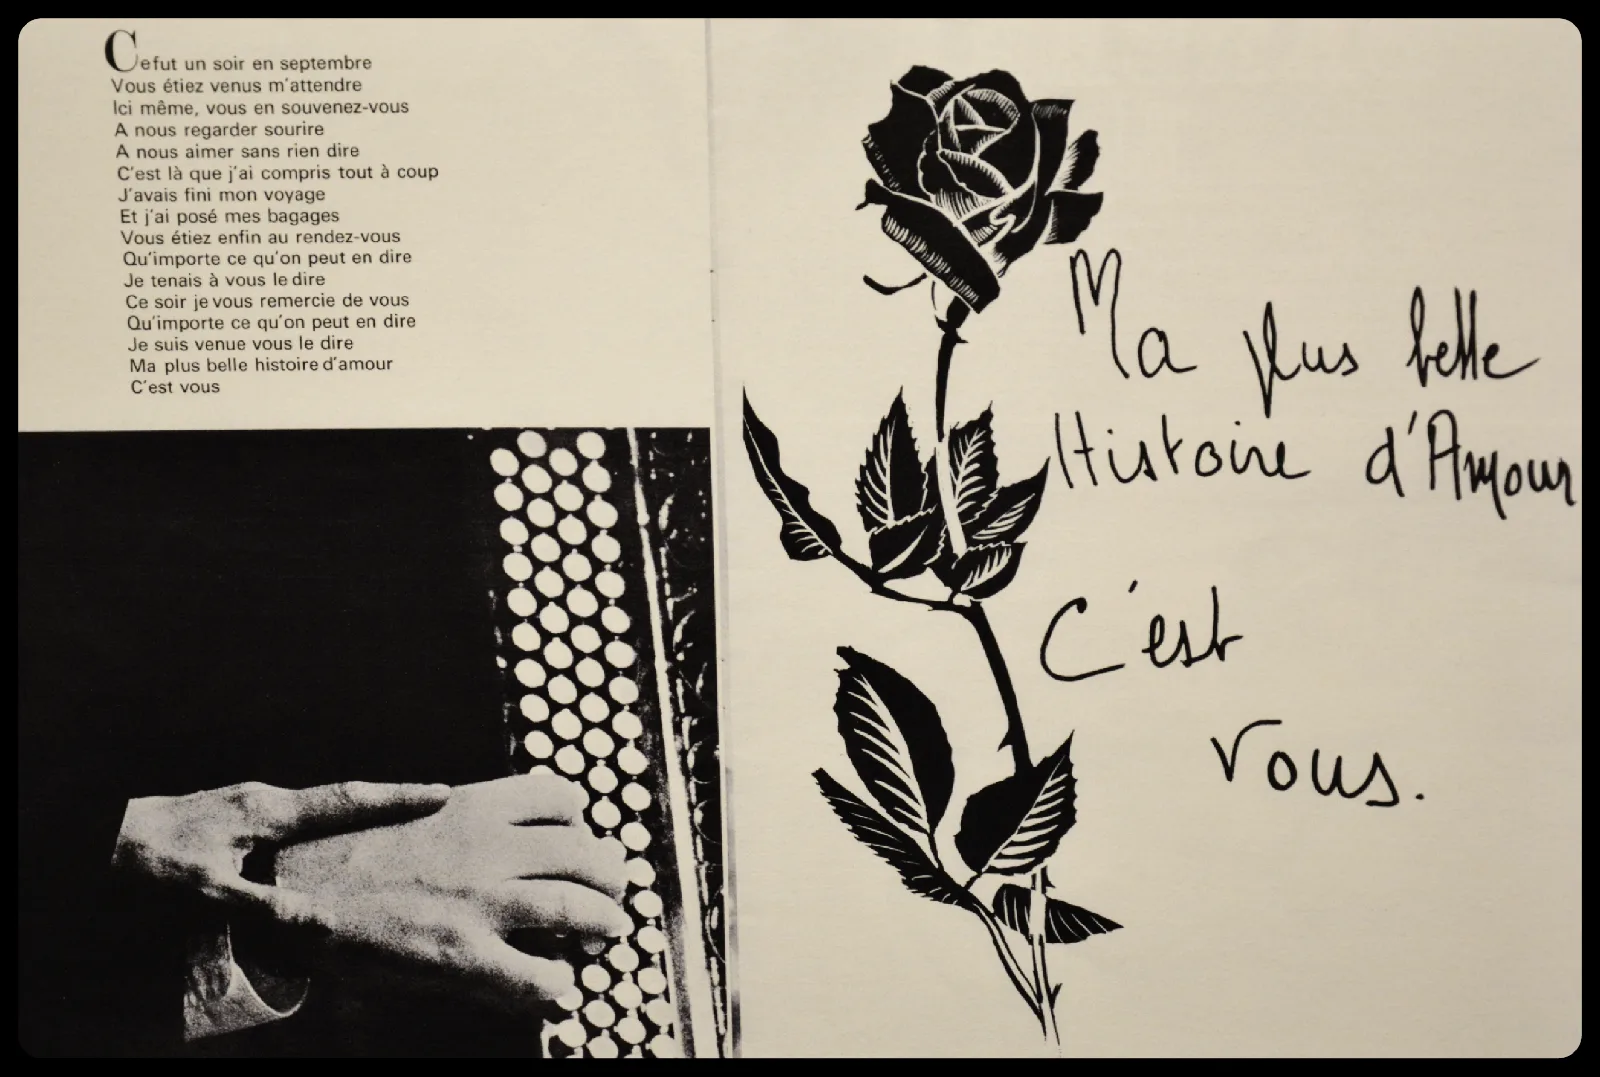 Ce fut un soir en septembre
Vous étiez venus m'attendre
Ici même, vous en souvenez-vous
A nous regarder sourire
A nous aimer sans rien dire
C'est là que j'ai compris tout à coup
J'avais fini mon voyage
Et j'ai posé mes bagages
Vous étiez enfin au rendez-vous
Qu'importe ce qu'on peut en dire
Je tenais à vous le dire
Ce soir je vous remercie de vous
Qu'importe ce qu'on peut en dire
Je suis venue vous le dire
Ma plus belle histoire d'amour
C'est vous
Ma plus belle
Histoire d'Amour
C'est
Vous.